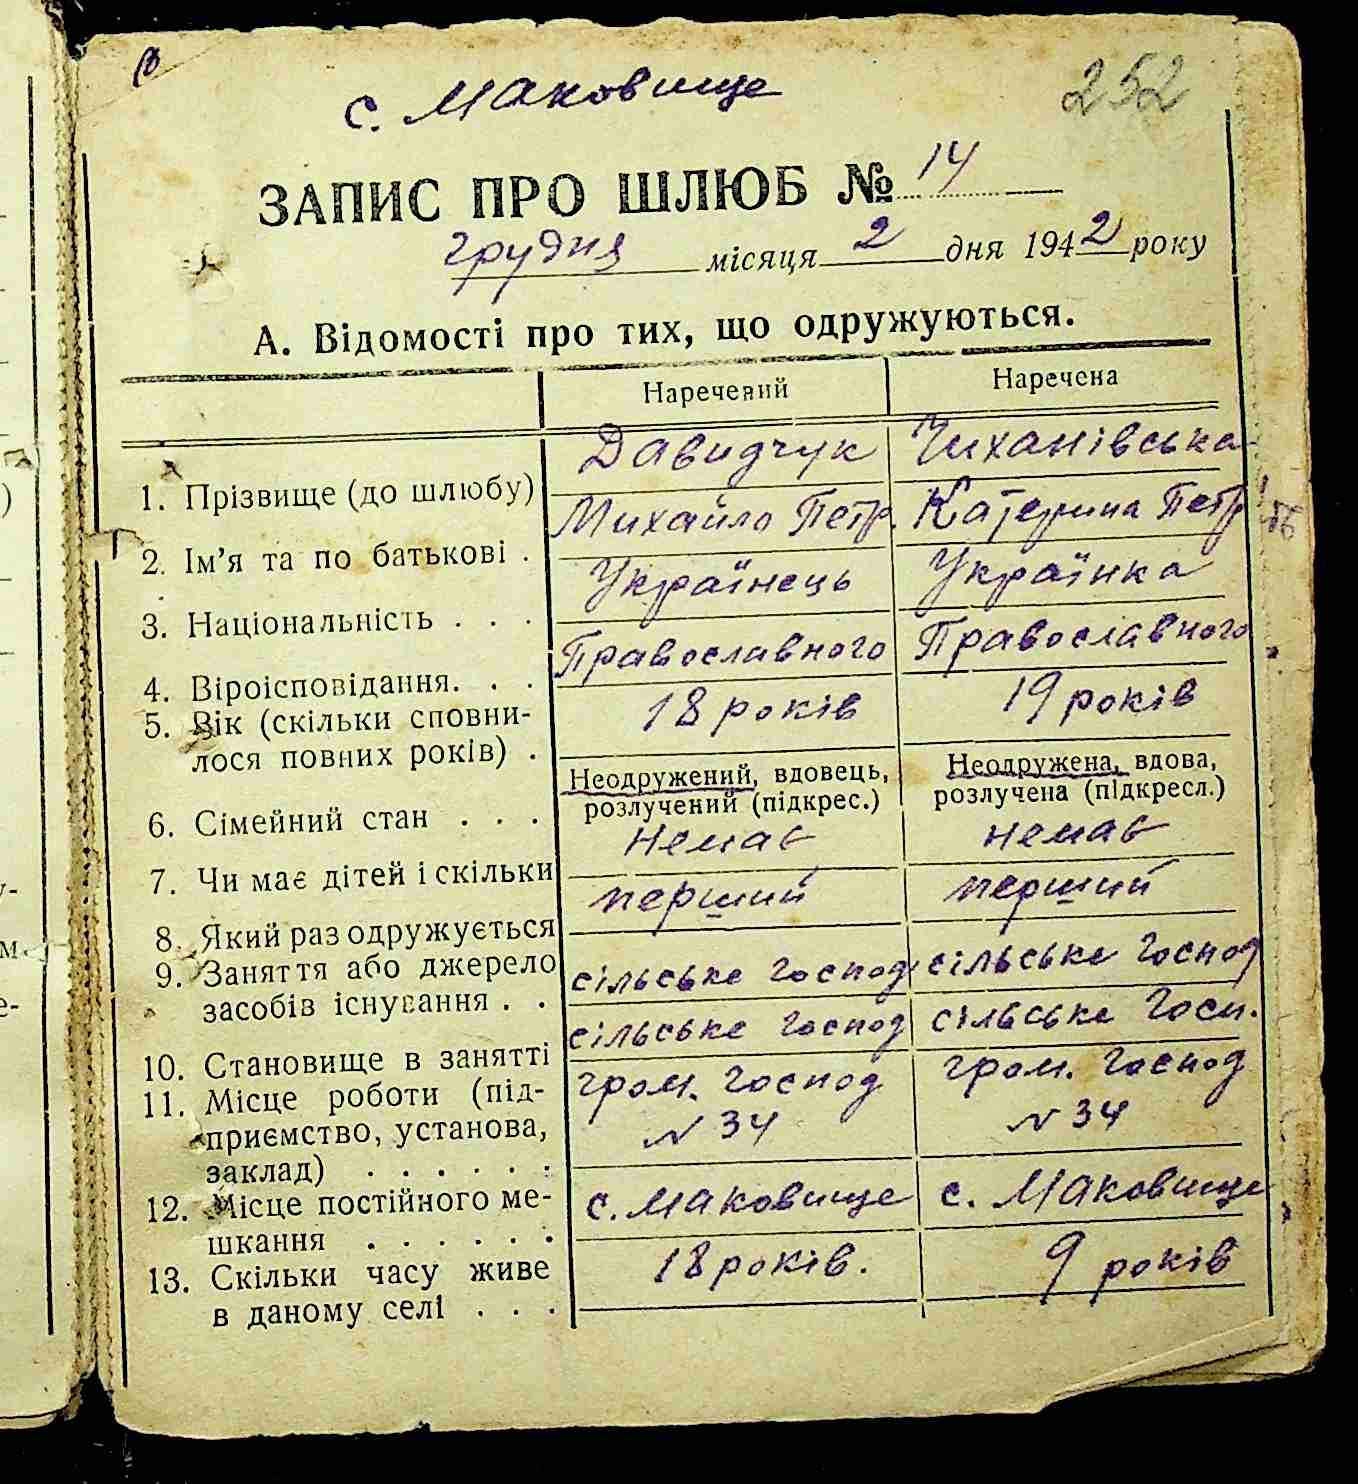 с. Маковище
252
ЗАПИС ПРО ШЛЮБ № 14
грудня місяця 2 дня 1942 року
А. Відомості про тих, що одружуються.
Наречений Наречена
1. Прізвище (до шлюбу) Давидчук Чиханівська
2. Ім'я та по батькові . Михайло Петр. Катерина Петр
3. Національність . . . Українець Українка
4. Віроісповідання. . . Православного Православного
5. Вік (скільки сповни-
лося повних років) . 18 років 19 років
6. Сімейний стан . . . Неодружений, вдовець, Неодружена, вдова,
розлучений (підкрес.) розлучена (підкресл.)
7. Чи має дітей і скільки немає немає
8. Який раз одружується перший перший
9. Заняття або джерело
засобів існування . . сільське господ. сільське господ
10. Становище в занятті сільське господ сільське госп.
11. Місце роботи (під- гром. господ гром. господ
приємство, установа, N 34 N 34
заклад) . . . . . .
12. Місце постійного ме-
шкання . . . . . . с. Маковище с. Маковище
13. Скільки часу живе 18 років. 9 років
в даному селі . . .